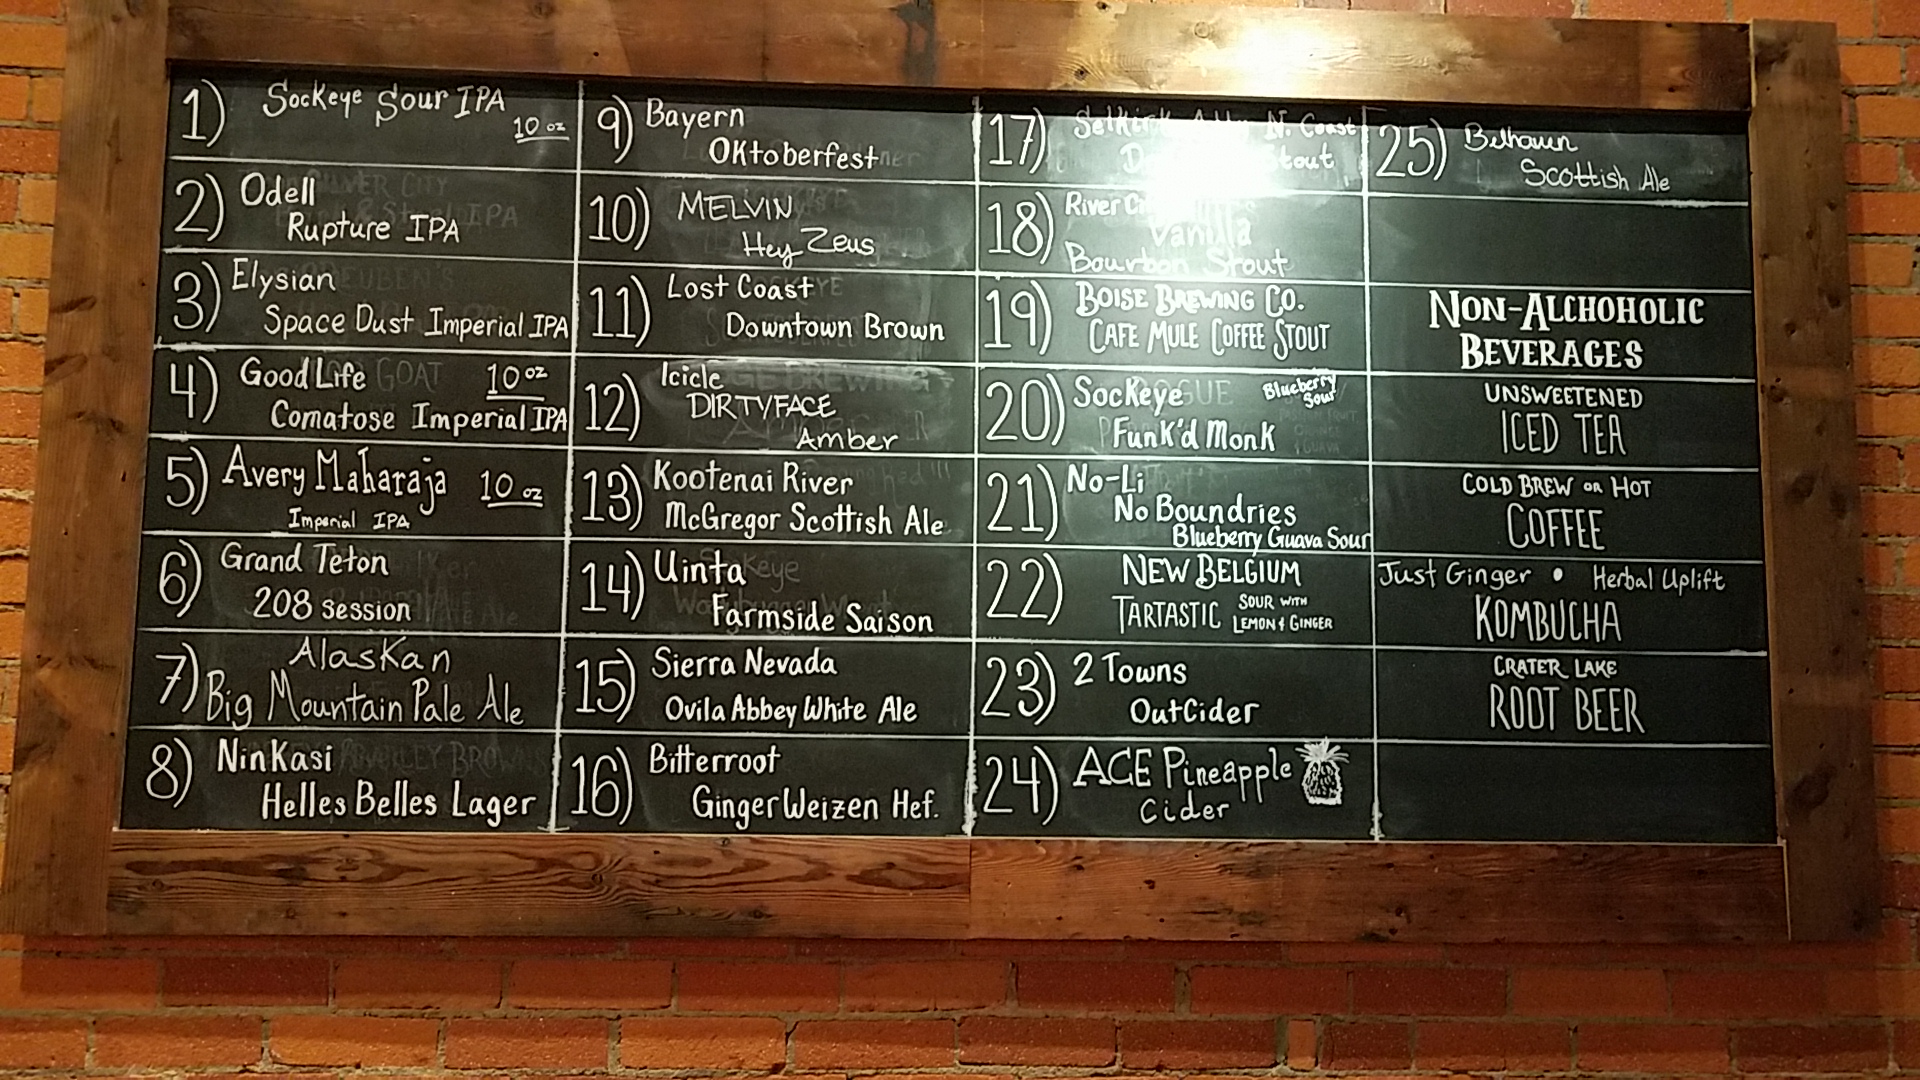 1) Sockeye Sour IPA
10 oz
2) Odell
Rupture IPA
3) Elysian
Space Dust Imperial IPA
4) Good Life 10 oz
Comatose Imperial IPA
5) Avery Maharaja 10 oz
Imperial IPA
6) Grand Teton
208 session
7) Alaskan
Big Mountain Pale Ale
8) Ninkasi
Helles Belles Lager
9) Bayern
Oktoberfest
10) MELVIN
Hey Zeus
11) Lost Coast
Downtown Brown
12) Icicle
DIRTYFACE
Amber
13) Kootenai River
McGregor Scottish Ale
14) Uinta
Farmside Saison
15) Sierra Nevada
Ovila Abbey White Ale
16) Bitterroot
Ginger Weizen Hef.
17) Selkirk N. Coast
Stout
18) River
Vanilla
Bourbon Stout
19) BOISE BREWING CO.
CAFE MULE COFFEE STOUT
20) Sockeye Blueberry
Sour
Funk'd Monk
21) No-Li
No Boundries
Blueberry Guava Sour
22) NEW BELGIUM
TARTASTIC SOUR WITH
LEMON & GINGER
23) 2 Towns
OutCider
24) ACE Pineapple
Cider
25) Belhaven
Scottish Ale
NON-ALCHOHOLIC
BEVERAGES
UNSWEETENED
ICED TEA
COLD BREW OR HOT
COFFEE
Just Ginger • Herbal Uplift
KOMBUCHA
CRATER LAKE
ROOT BEER